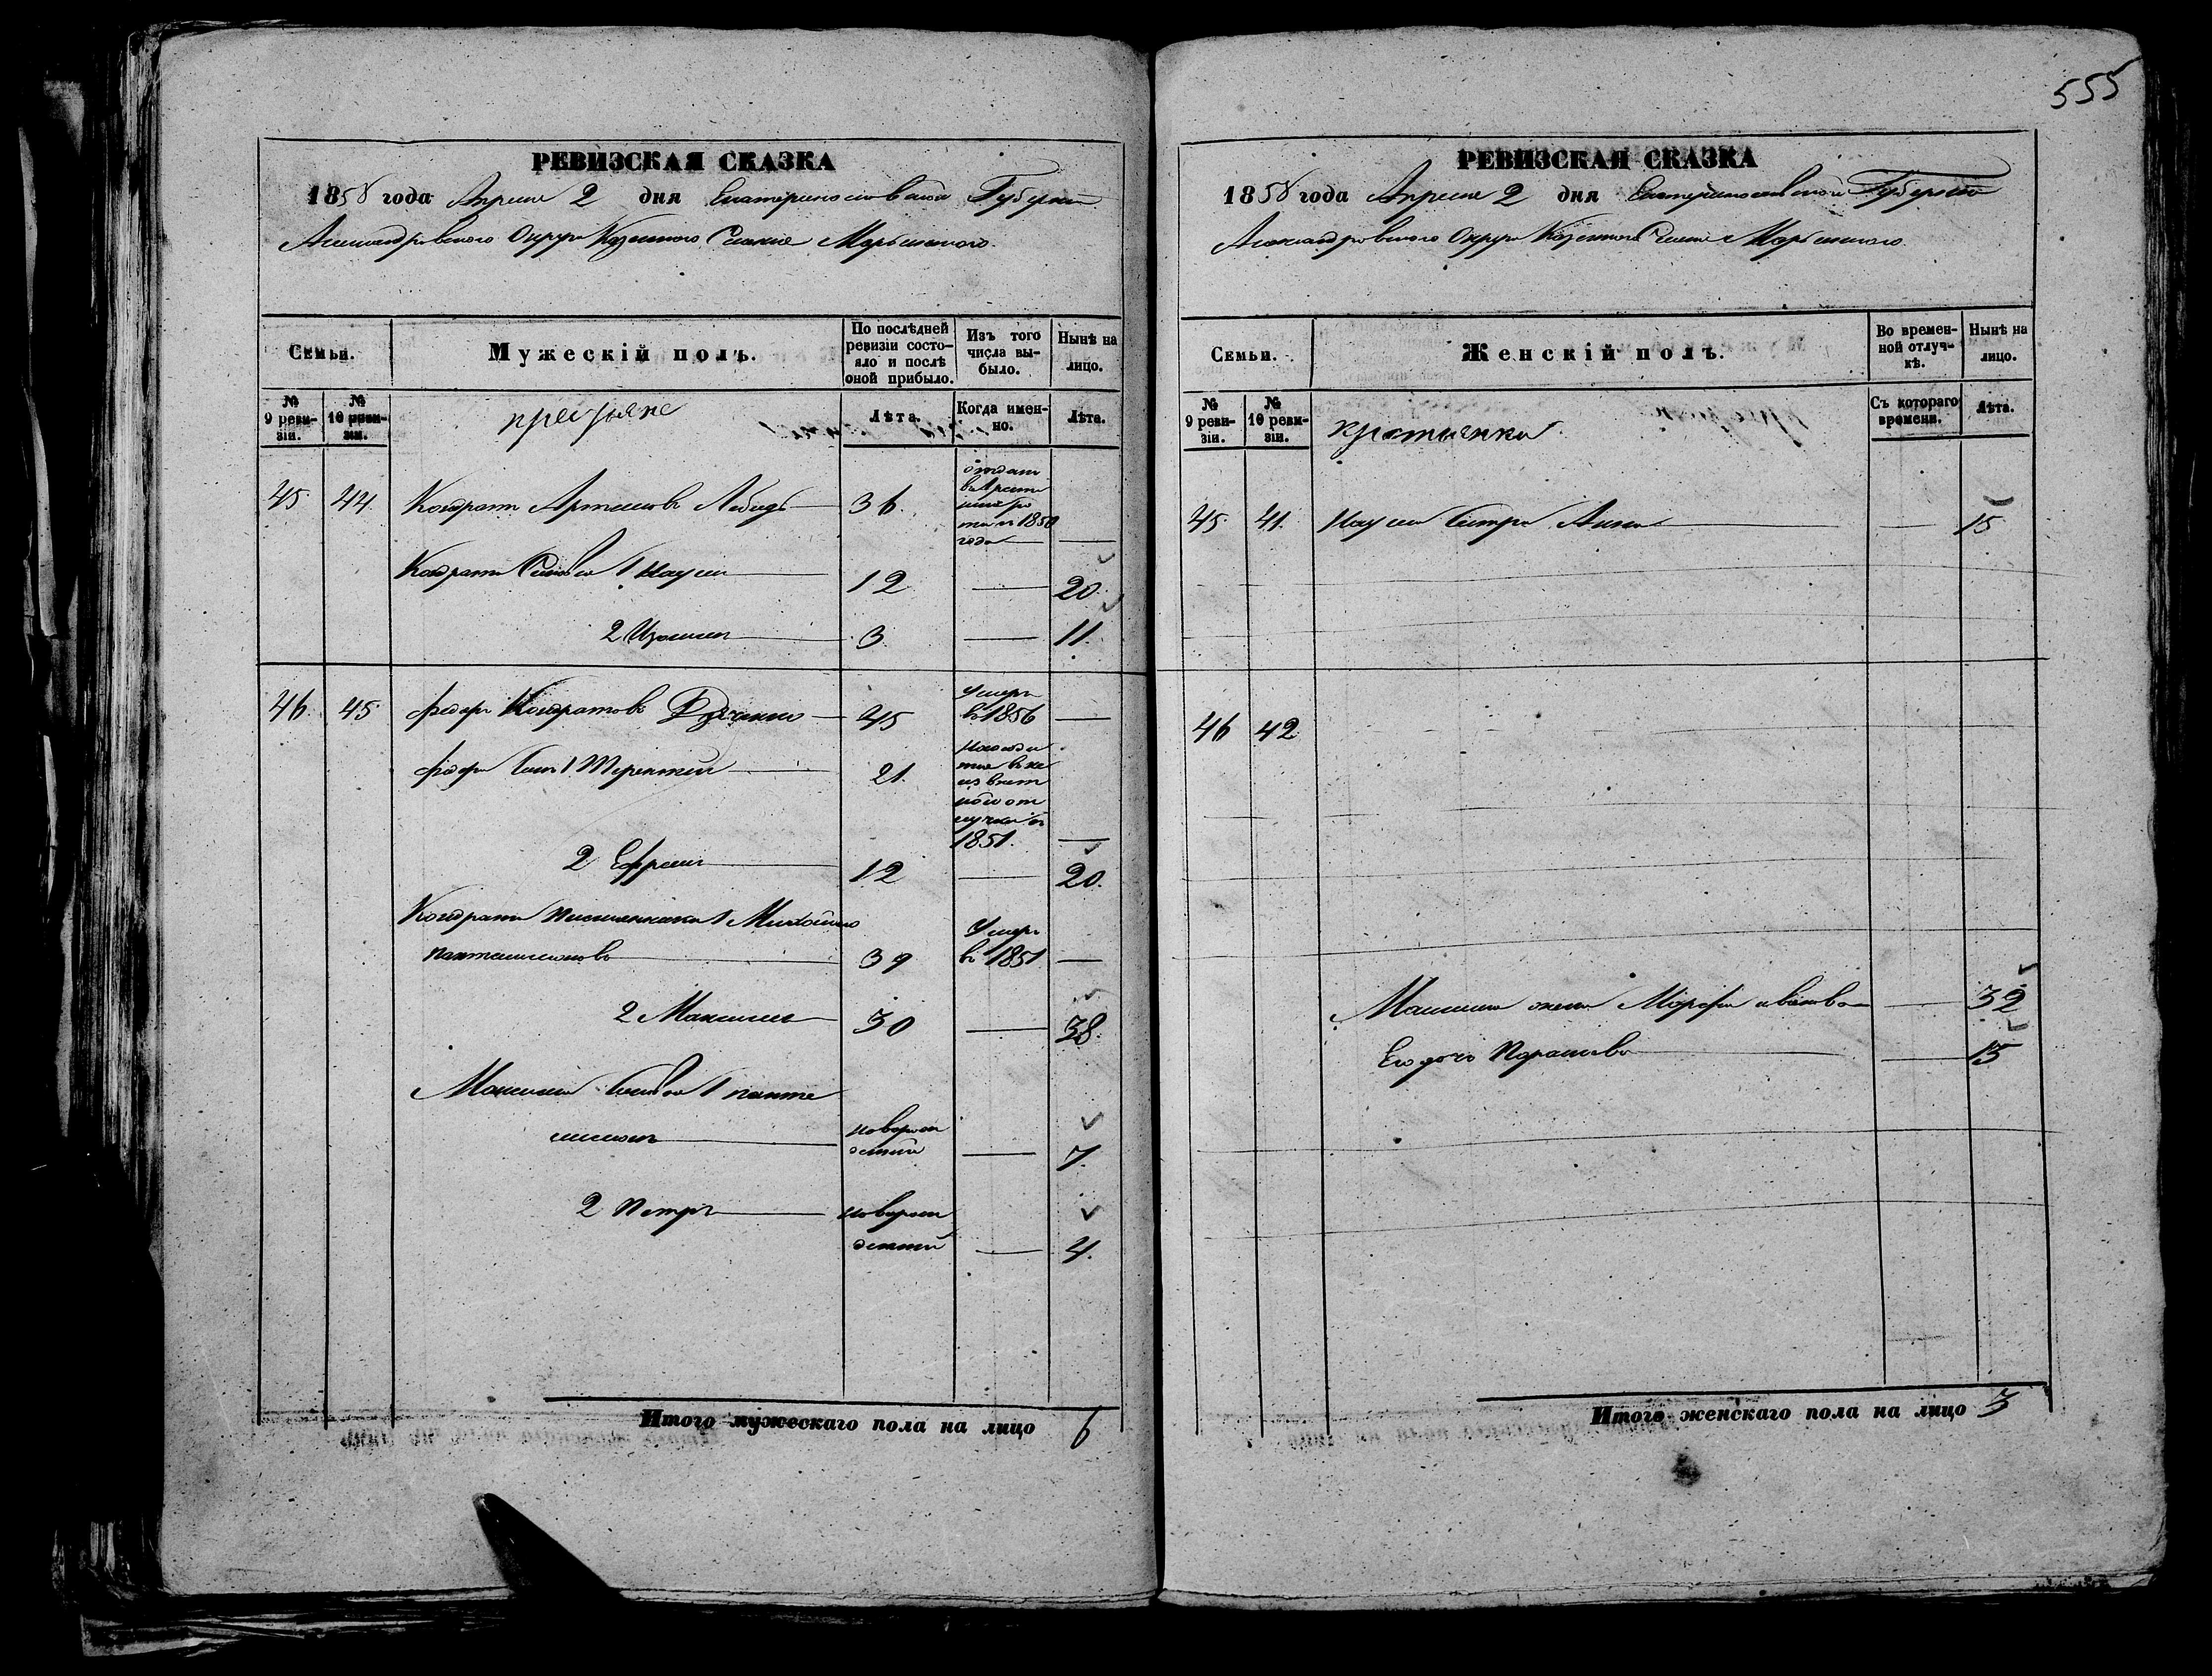 555
РЕВИЗСКАЯ СКАЗКА
1858 года Апреля 2 дня Екатеринославской Губернии
Александровского Округа Казенного Селения Марьинского.
Семьи.
Мужескій полъ.
По послѣдней ревизіи состояло и послѣ оной прибыло.
Изъ того числа выбыло.
Нынѣ на лицо.
№ 9 ревизіи.
№ 10 ревизіи.
Лѣта.
Когда именно.
Лѣта.
45. 44. Кондрат Артемов Лебедь 36. отдан в Арестанские роты в 1850 года
Кондрата Сыновья 1 Наум 12 20.
2 Герасим 3 11.
46. 45 Федор Кондратов 45 Умеръ в 1856
Федора Сын 1 Терентий 21. находится в неизвестной отлучки с 1851.
2 Ефрем 12 20.
Кондрата племянники 1 Михайло
Пантелимонов 39 Умер в 1851
2 Максим 30 38.
Максима Сыновья 1 Панте
лимон новорожденный 7.
2 Петръ новорожденный 4.
Итого мужескаго пола на лицо 6
РЕВИЗСКАЯ СКАЗКА
1858 года Апреля 2 дня Екатеринославской Губернии
Александровского Округа Казенного Селения Марьинского.
Семьи.
Женскій полъ.
Во временной отлучкѣ.
Нынѣ на лицо.
№ 9 ревизіи.
№ 10 ревизіи.
Съ котораго времени.
Лѣта.
45. 41. Наума Сестра Анна 15
46 42
Максима жена Марфа Иванова 32
Его дочь Парасковья 15
Итого женскаго пола на лицо 3